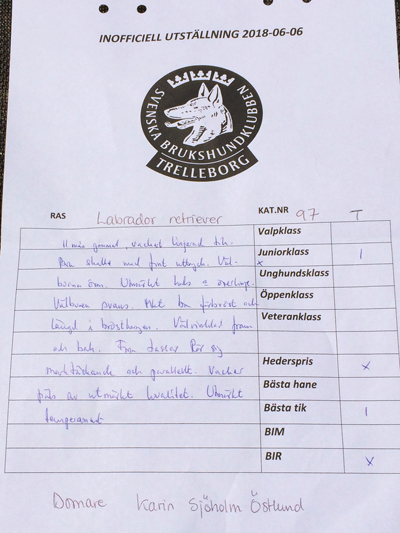 INOFFICIELL UTSTÄLLNING 2018-06-06
SVENSKA BRUKSHUNDKLUBBEN
TRELLEBORG
RAS Labrador retriever KAT.NR 97 T
Valpklass
11 mån gammal, vacker tik.
Juniorklass 1
Bra skalle med fint uttryck. Väl-
x
burna öron. Utmärkt hals o överlinje.
Unghundsklass
Välburen svans. Mkt bra förbröst och
Öppenklass
längd i bröstkorgen. Välvinklad fram
Veteranklass
och bak. Fina tassar. Rör sig
marktäckande och parallellt. Vacker
Hederspris x
päls av utmärkt kvalitet. Utmärkt
Bästa hane
temperament
Bästa tik 1
BIM
BIR x
Domare Karin Sjöholm Östlund